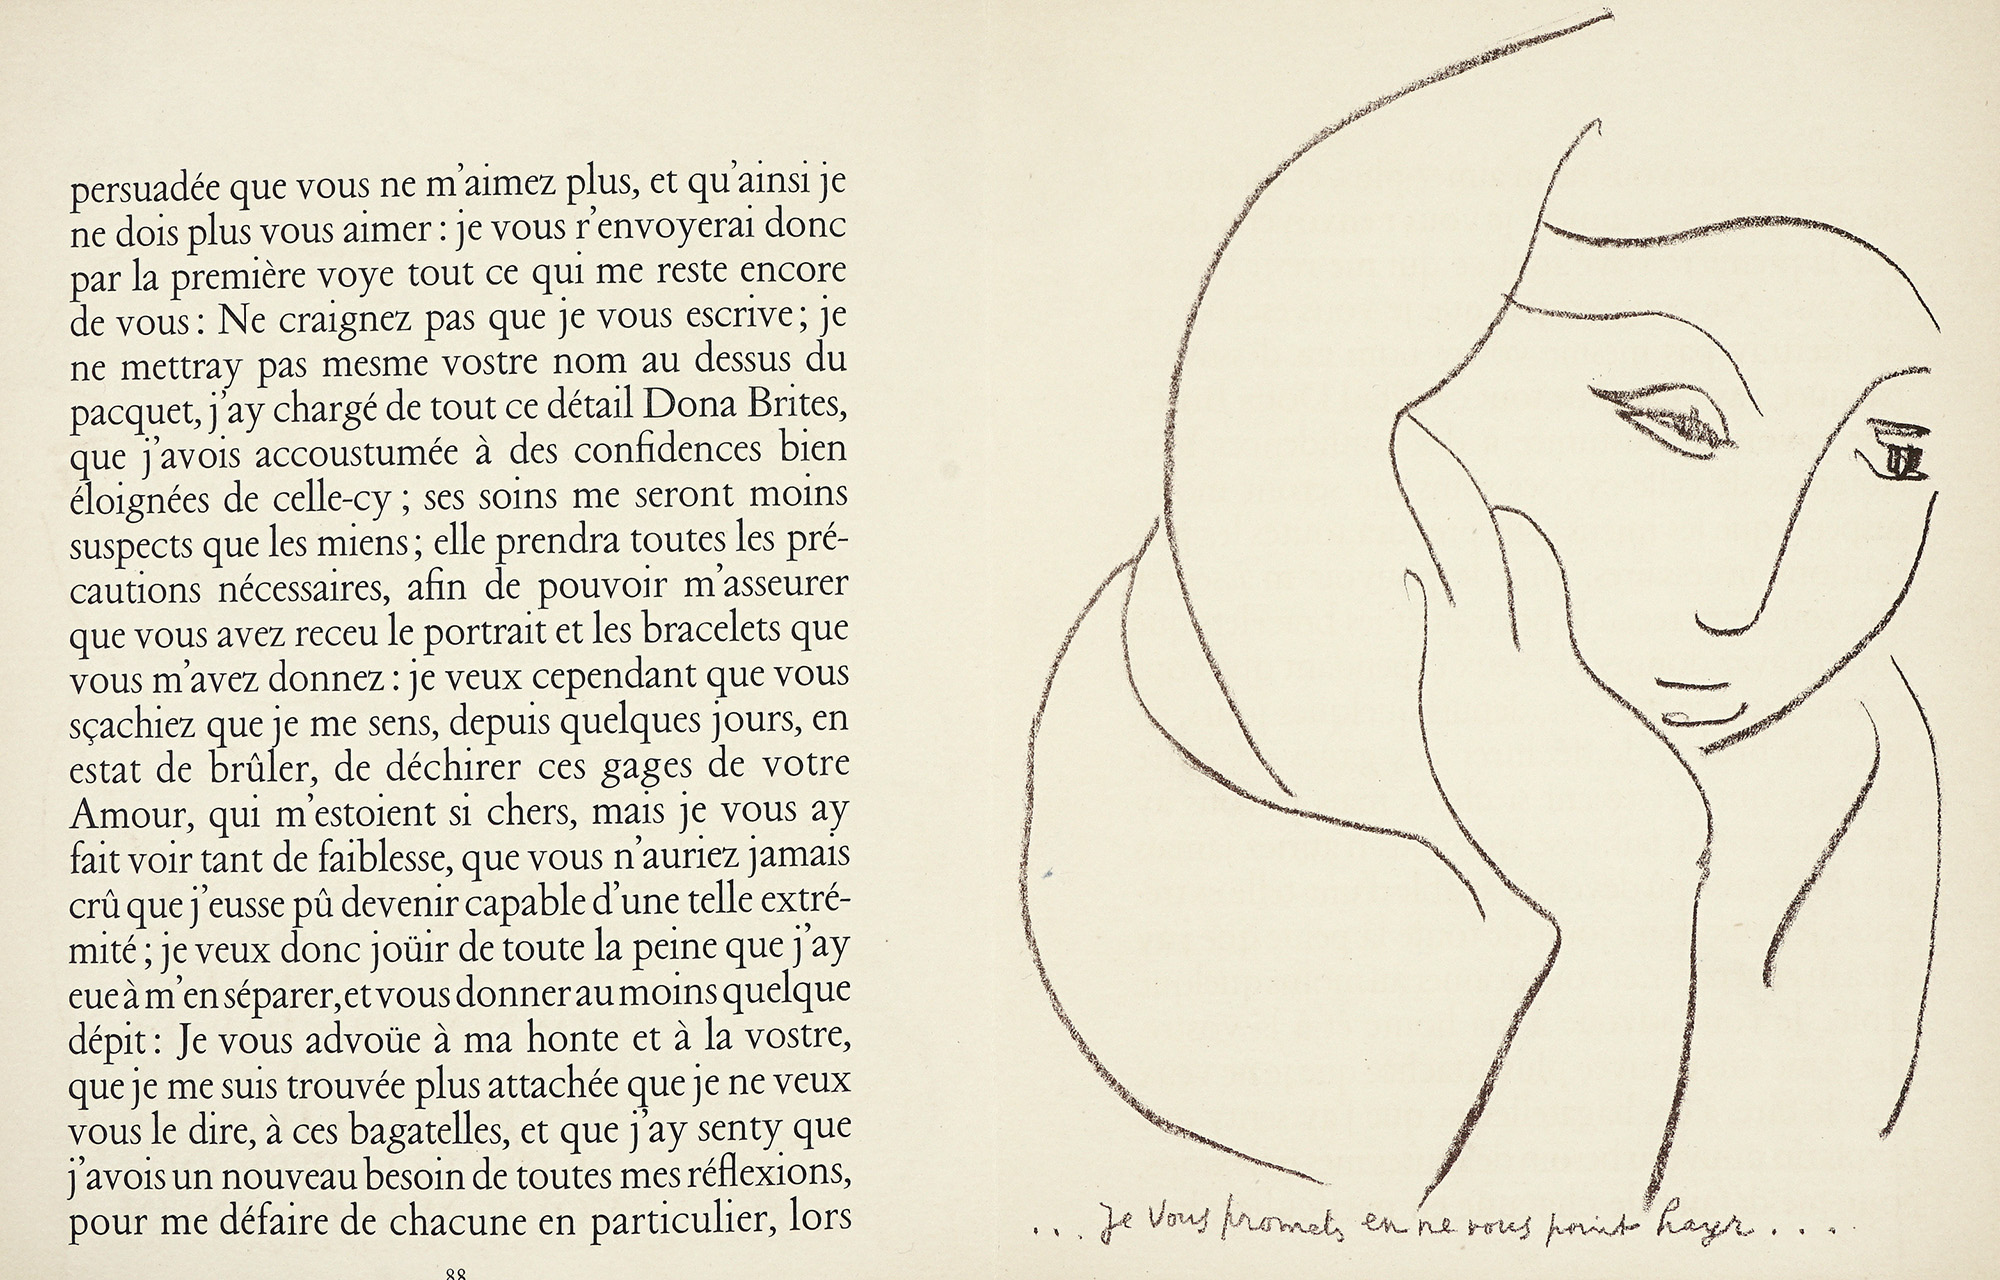 persuadée que vous ne m’aimez plus, et qu’ainsi je
ne dois plus vous aimer : je vous r’envoyerai donc
par la première voye tout ce qui me reste encore
de vous : Ne craignez pas que je vous escrive ; je
ne mettray pas mesme vostre nom au dessus du
pacquet, j’ay chargé de tout ce détail Dona Brites,
que j’avois accoustumée à des confidences bien
éloignées de celle-cy ; ses soins me seront moins
suspects que les miens ; elle prendra toutes les pré-
cautions nécessaires, afin de pouvoir m’asseurer
que vous avez receu le portrait et les bracelets que
vous m’avez donnez : je veux cependant que vous
sçachiez que je me sens, depuis quelques jours, en
estat de brûler, de déchirer ces gages de votre
Amour, qui m’estoient si chers, mais je vous ay
fait voir tant de faiblesse, que vous n’auriez jamais
crû que j’eusse pû devenir capable d’une telle extré-
mité ; je veux donc joüir de toute la peine que j’ay
eue à m’en séparer, et vous donner au moins quelque
dépit : Je vous advoüe à ma honte et à la vostre,
que je me suis trouvée plus attachée que je ne veux
vous le dire, à ces bagatelles, et que j’ay senty que
j’avois un nouveau besoin de toutes mes réflexions,
pour me défaire de chacune en particulier, lors
88
. . . Je vous promets en ne vous point hayr . . . .